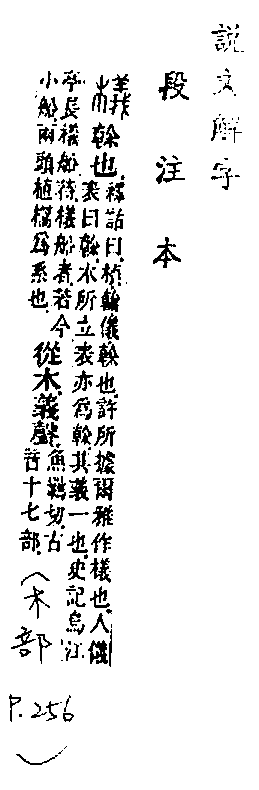 説文解字
段注本
檥榦也.
釋詁曰.楨翰儀榦也.許所據爾雅作檥也.人儀
表曰榦.木所立表亦爲榦.其義一也.史記烏江
亭長檥船待.檥船者若今
小船兩頭植檣爲系也.
從木.義聲.
魚羈切.古
音十七部.
(木部
P.256
)